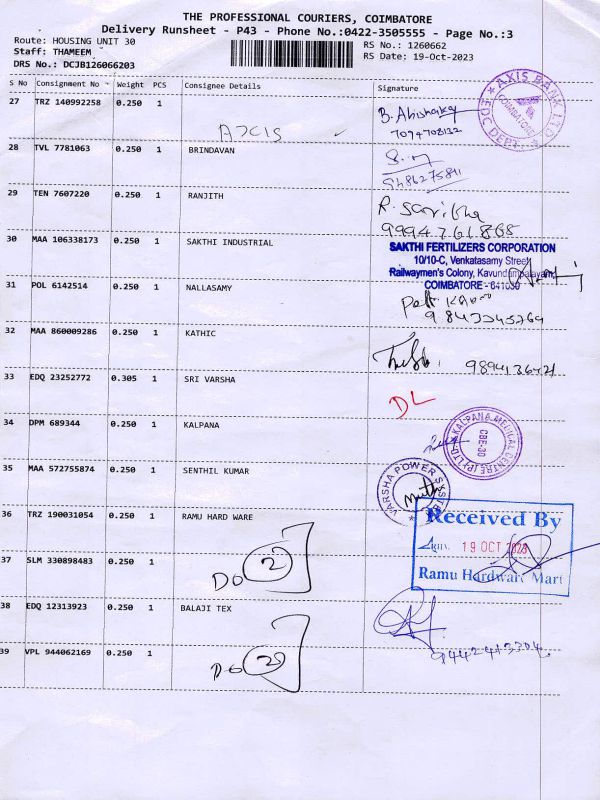 THE PROFESSIONAL COURIERS, COIMBATORE
Delivery Runsheet - P43 - Phone No.:0422-3505555 - Page No.:3
Route: HOUSING UNIT 30
Staff: THAMEEM
DRS No.: DCJB126066203
RS No.: 1260662
RS Date: 19-Oct-2023
S No Consignment No Weight PCS Consignee Details Signature
27 TRZ 140992258 0.250 1
AXIS BANK LTD
EDC DEPT.
COIMBATORE
7094708132
28 TVL 7781063 0.250 1 BRINDAVAN
9486275811
29 TEN 7607220 0.250 1 RANJITH
9994761868
30 MAA 106338173 0.250 1 SAKTHI INDUSTRIAL
SAKTHI FERTILIZERS CORPORATION
10/10-C, Venkatasamy Street
Railwaymen's Colony, Kavundampalayam,
COIMBATORE - 641030
31 POL 6142514 0.250 1 NALLASAMY
32 MAA 860009286 0.250 1 KATHIC
33 EDQ 23252772 0.305 1 SRI VARSHA
DL
34 DPM 689344 0.250 1 KALPANA
KALPANA MEDICAL CENTRE (P) LTD
CBE-30
35 MAA 572755874 0.250 1 SENTHIL KUMAR
VARSHA POWER SYSTEMS
36 TRZ 190031054 0.250 1 RAMU HARD WARE
Received By
19 OCT 2023
Ramu Hardware Mart
37 SLM 330898483 0.250 1
Do 2
38 EDQ 12313923 0.250 1 BALAJI TEX
39 VPL 944062169 0.250 1
Do 2
9442413304